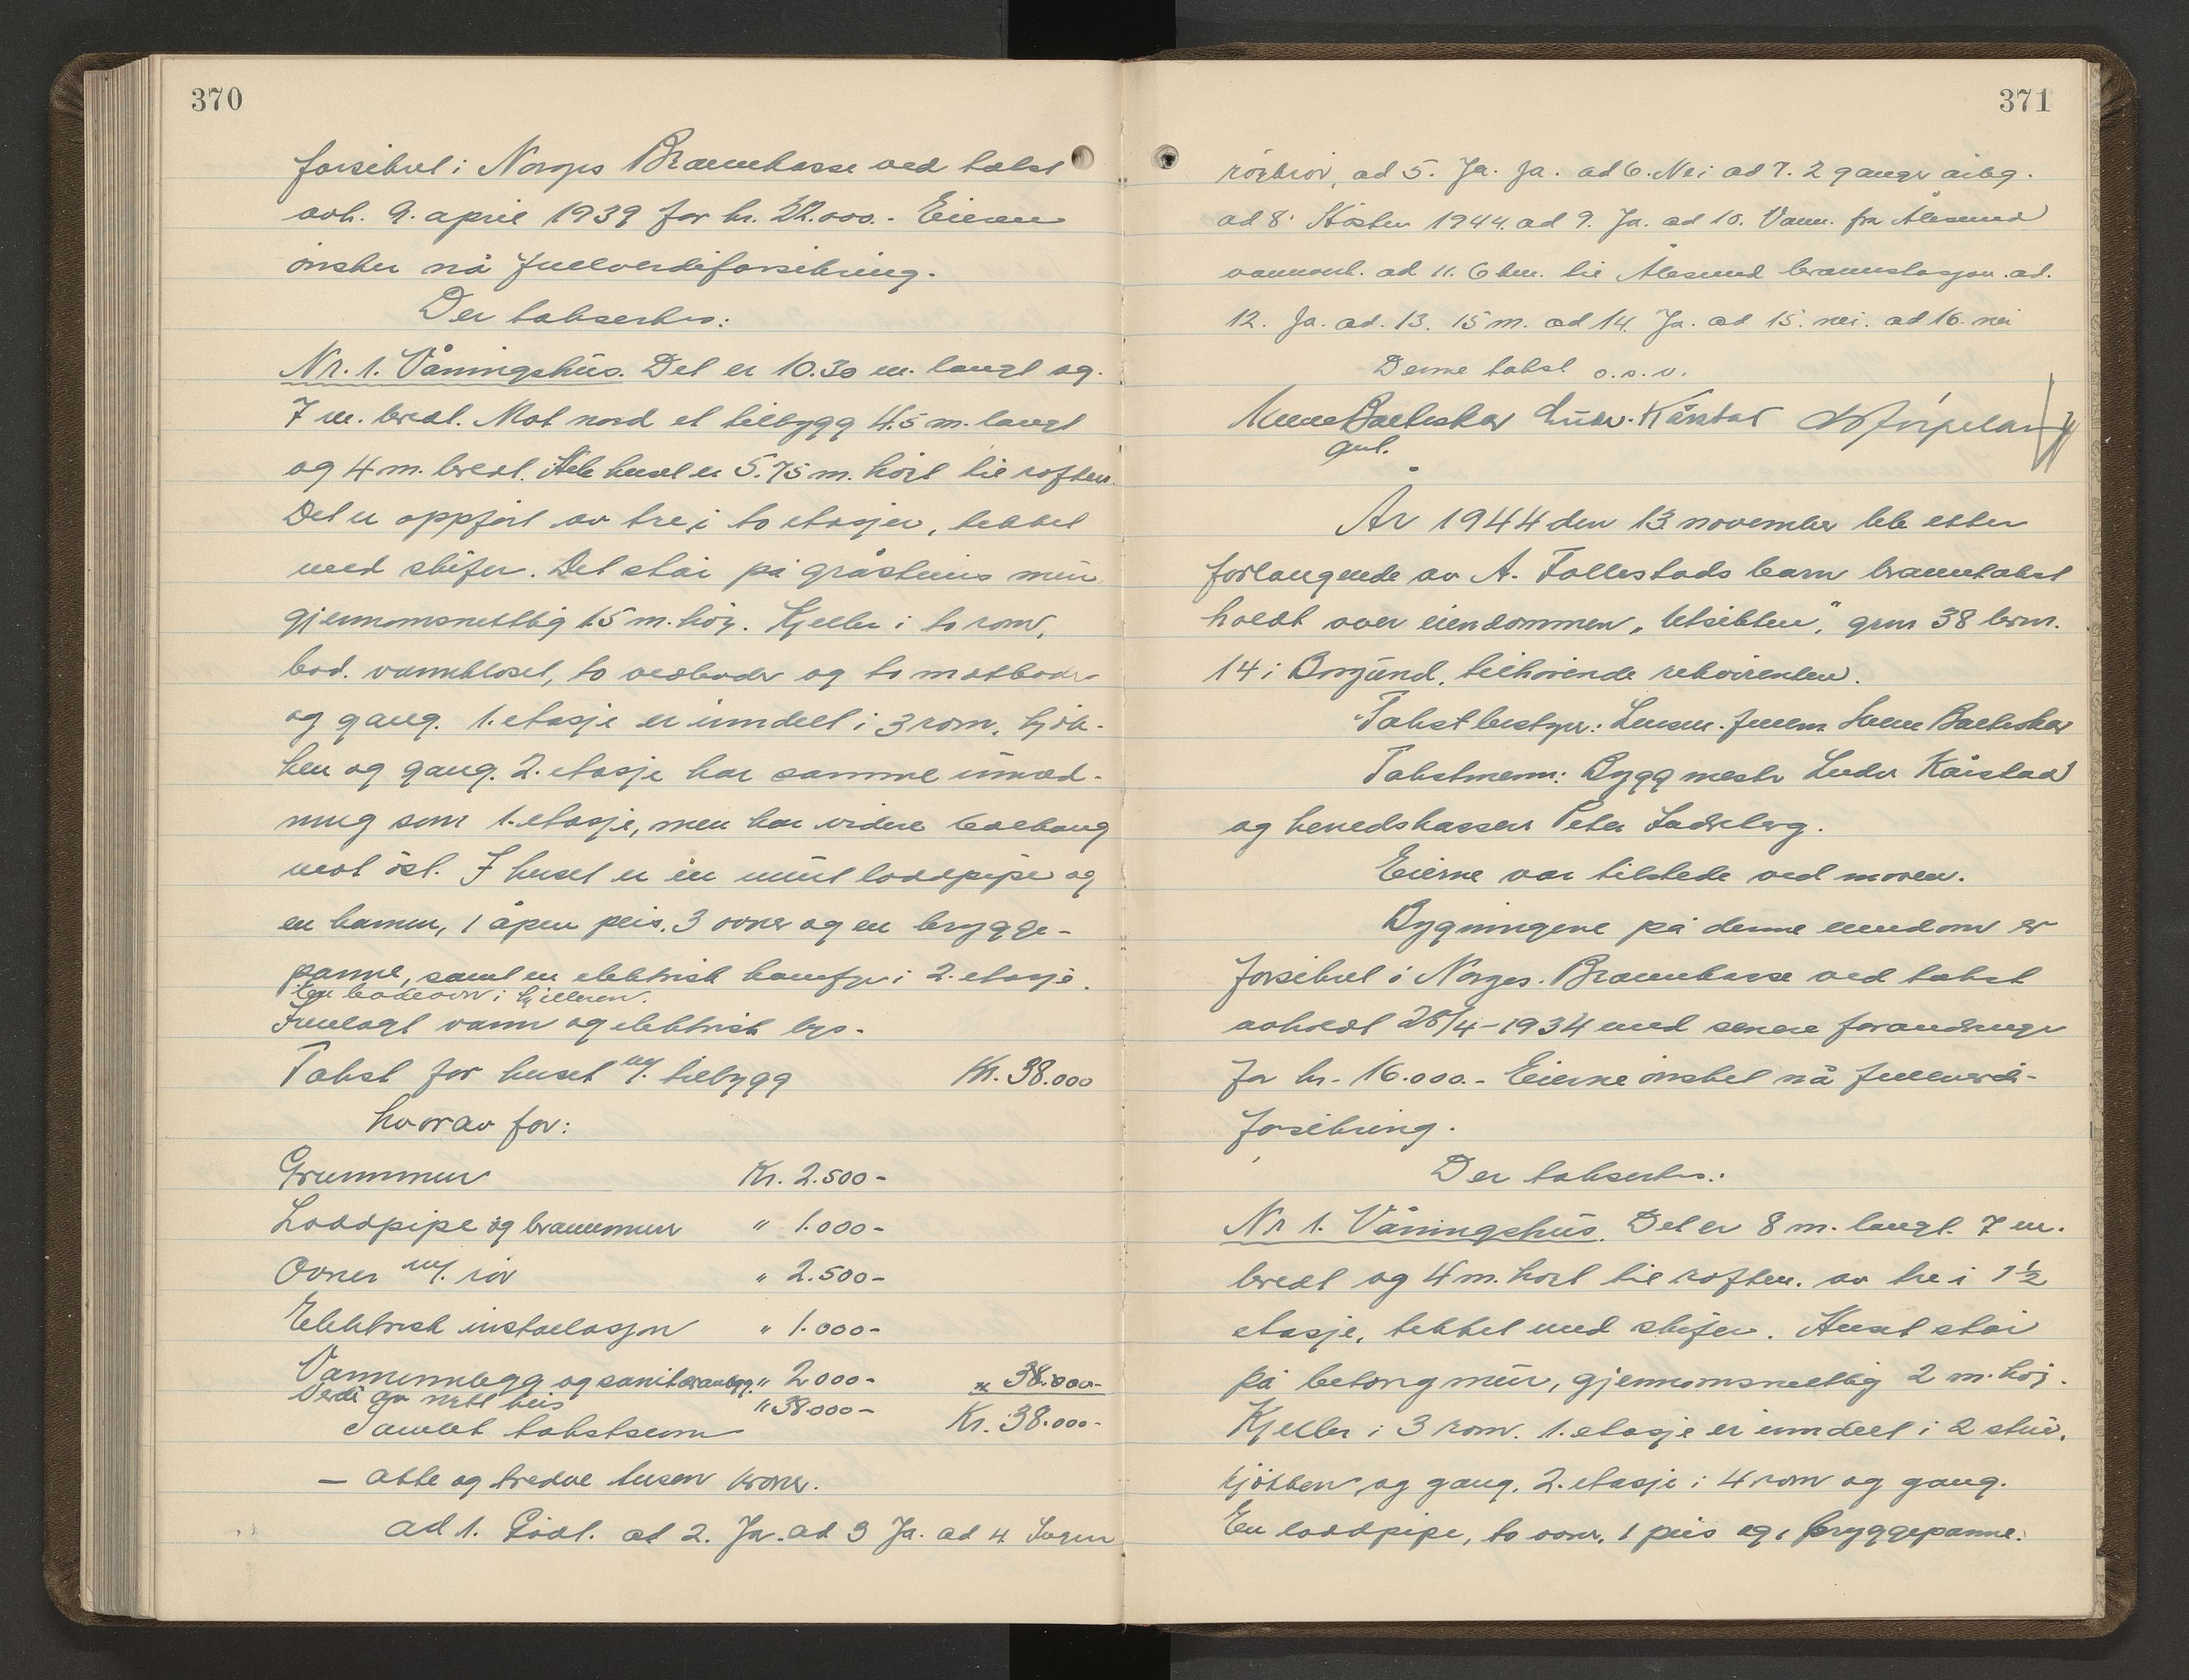 370
forsikret i Norges Brannkasse ved takst
avh. 9. april 1939 for kr. 22.000.- Eieren
ønsker nå fullverdiforsikring.
Der taksertes:
Nr. 1. Våningshus. Det er 10.30 m. langt og
7 m. bredt. Mot nord et tilbygg 4.5 m. langt
og 4 m. bredt. Hele huset er 5.75 m. høit til raften.
Det er oppført av tre i to etasjer, tekket
med skifer. Det står på gråsteins mur
gjennomsnittlig 1.5 m. høi. Kjeller i to rom,
bad. vannkloset, to vedboder og to matboder
og gang. 1. etasje er inndelt i 3 rom, kjøk-
ken og gang. 2. etasje har samme innred-
ning som 1. etasje, men har videre balkong
mot øst. I huset er én murt loddpipe og
en kamin, 1 åpen peis, 3 ovner og en brygge-
panne, samt en elektrisk komfyr i 2. etasje.
En badeovn i kjelleren.
Innlagt vann og elektrisk lys.
Takst for huset m/. tilbygg Kr. 38.000
hvorav for:
Grunnmur Kr. 2.500-
Loddpipe og brannmur " 1.000-
Ovner m/. rør " 2.500-
Elektrisk installasjon " 1.000-
Vanninnlegg og sanitæranlegg " 2000- " 38.000-
Verdi av nytt hus " 38.000-
Samlet takstsum Kr. 38.000-
— otte og tredve tusen kroner.
ad 1. Godt. ad 2. Ja. ad 3 Ja. ad 4. Ingen
371
ad 5. Ja. Ja. ad 6. Nei ad 7. 2 ganger årlig.
ad 8. Høsten 1944. ad 9. Ja. ad 10. Vann. fra Ålesund
vannverk. ad 11. 6 km. til Ålesund brannstasjon. ad.
12. Ja. ad. 13. 15 m. ad 14. Ja. ad 15. nei. ad 16. nei
Denne takst o.s.v.
Ludv. Kårstad
År 1944 den 13. november ble etter
forlangende av A. Follestads barn branntakst
holdt over eiendommen „Utsikten", gnr 38 brnr.
14 i Borgund, tilhørende rekvirenten.
Takstbestyrer: Lensm. fullm.
Takstmenn: Byggmester Ludv Kårstad
og herredskasserer Peter
Eierne var tilstede ved møtet.
Bygningene på denne eiendom er
forsikret i Norges. Brannkasse ved takst
avholdt 28/4-1934 med senere forandringer
for kr. 16.000.- Eierne ønsket nå fullverdi-
forsikring.
Der taksertes:
Nr 1. Våningshus. Det er 8 m. langt. 7 m.
bredt og 4 m. høit til raften. av tre i 1½
etasje, tekket med skifer. Huset står
på betongmur, gjennomsnittlig 2 m. høi.
Kjeller i 3 rom. 1. etasje er inndelt i 2 stuer,
kjøkken og gang. 2. etasje i 4 rom og gang.
En loddpipe, to ovner, 1 peis og 1 bryggepanne.